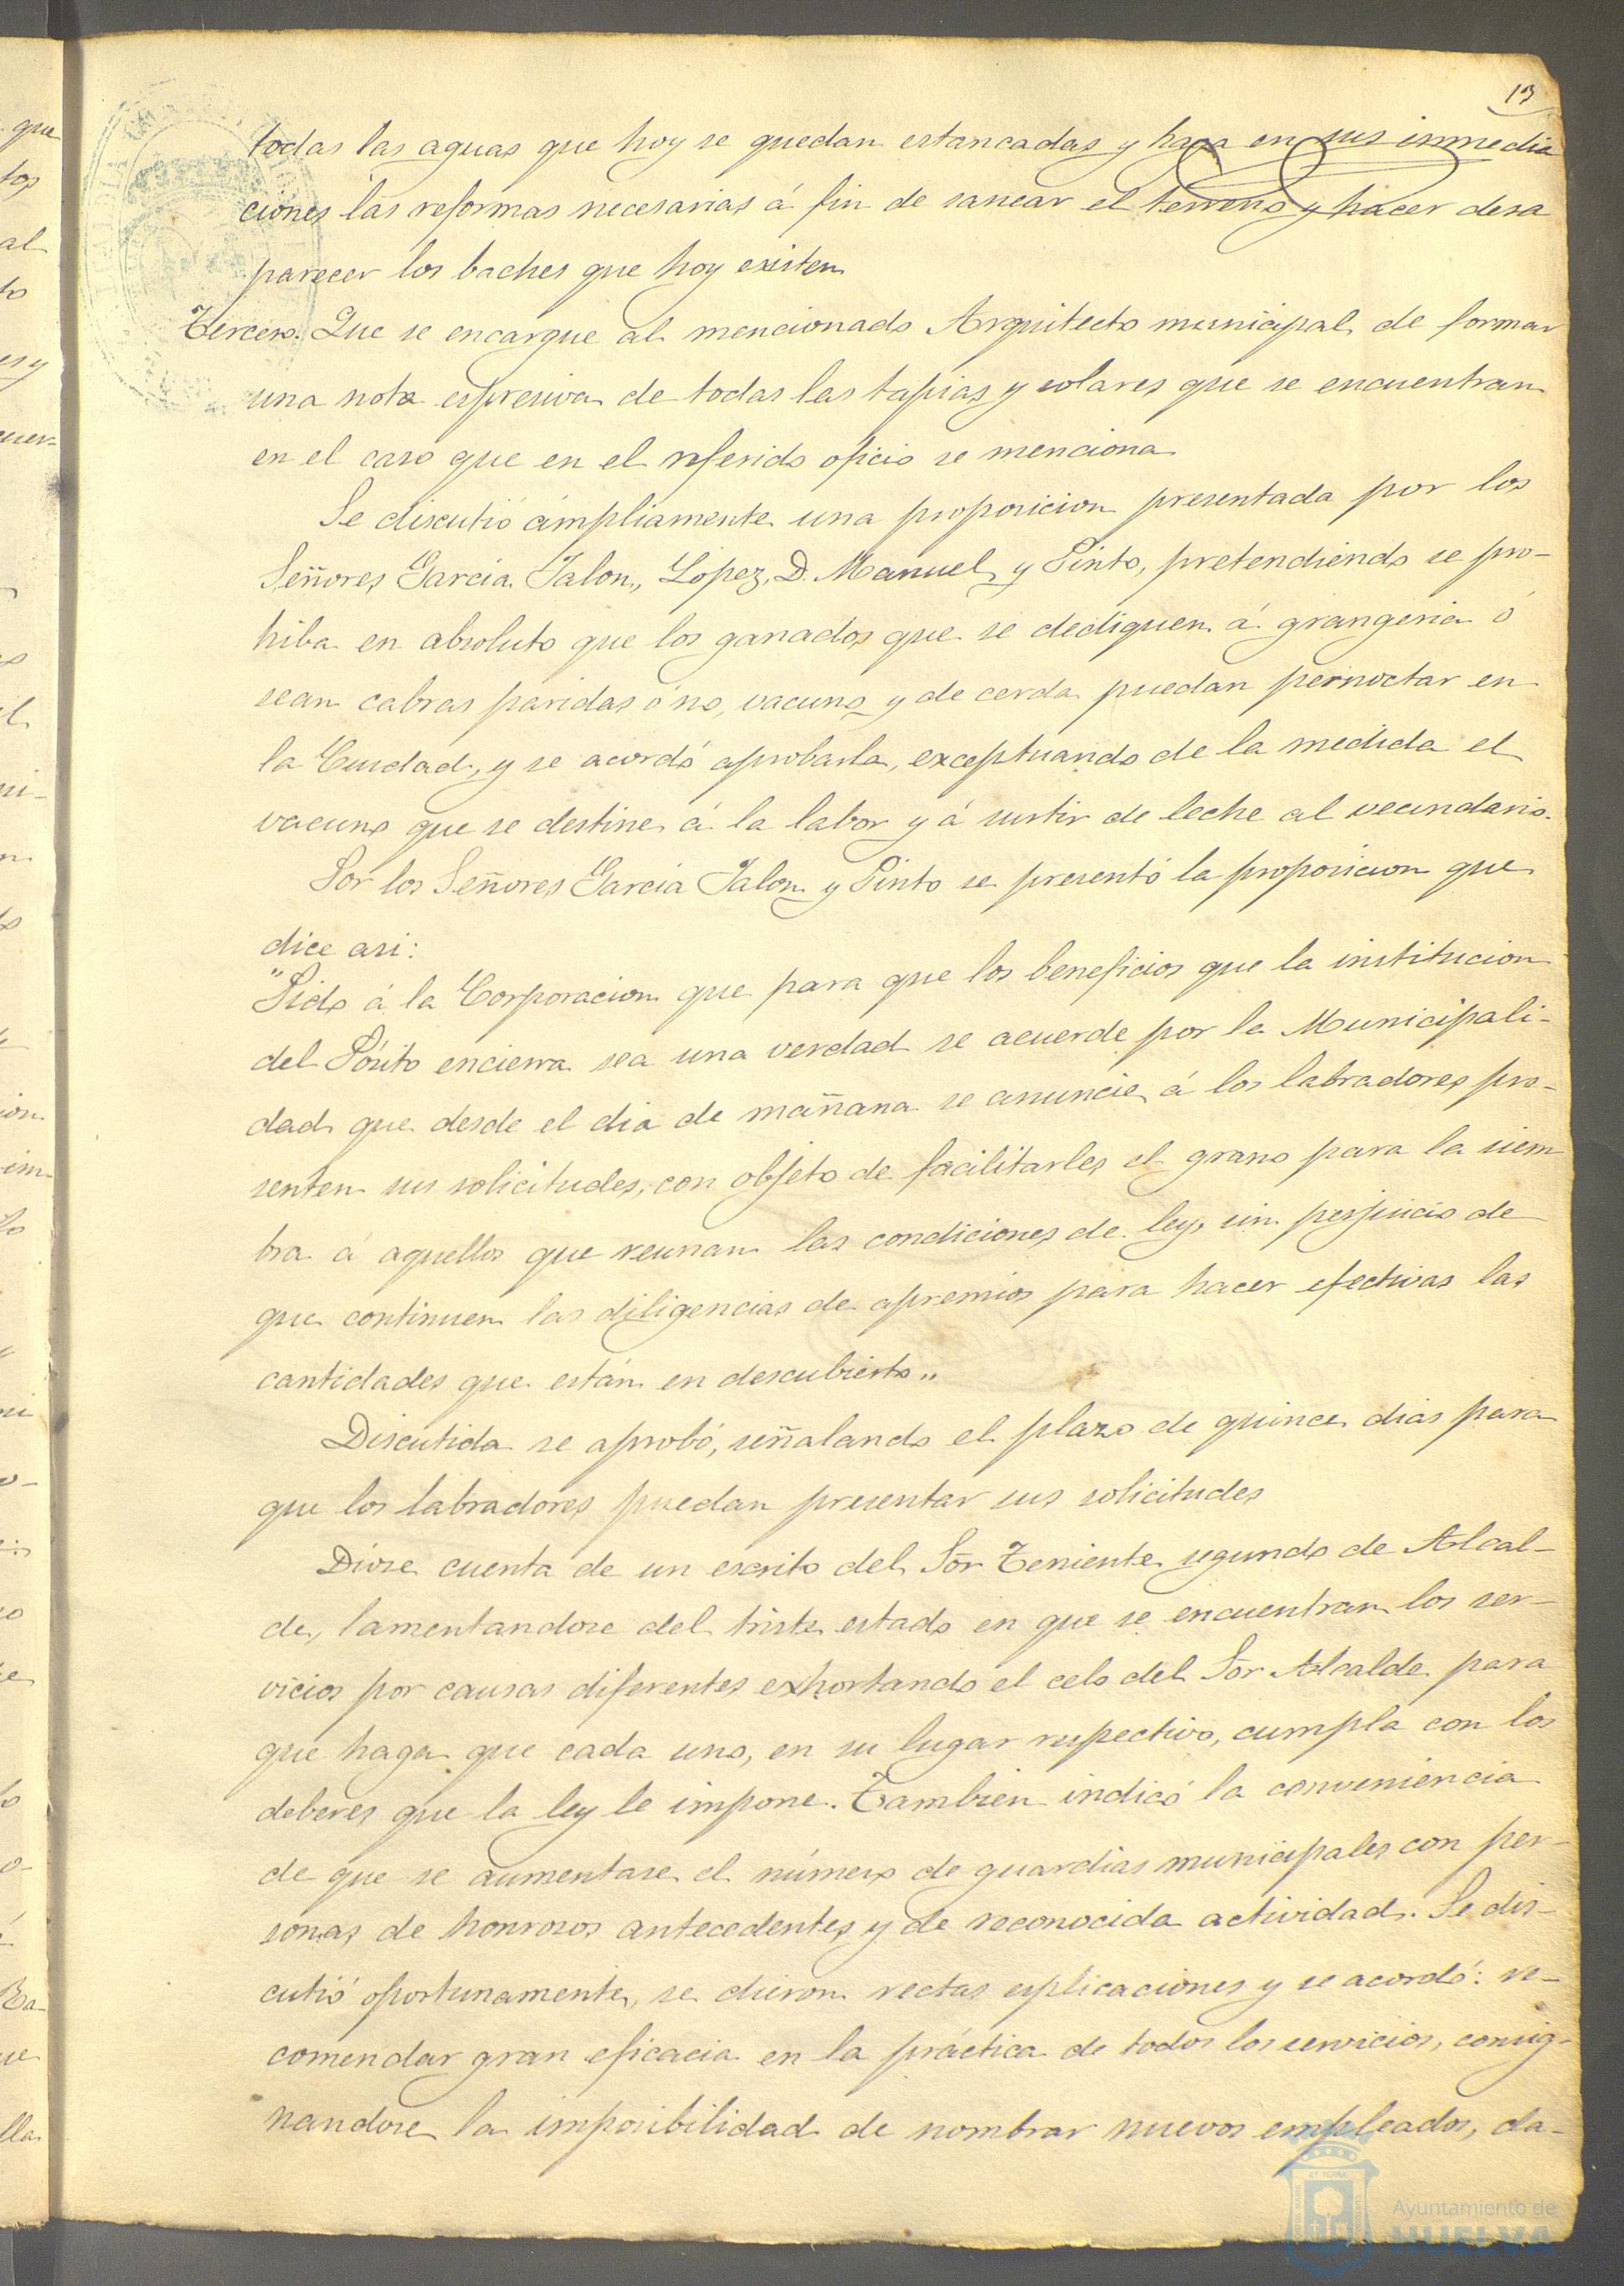 13
todas las aguas que hoy se quedan estancadas y haga en sus inmedia
ciones las reformas necesarias á fin de sanear el terreno y hacer desa
parecer los baches que hoy existen
Tercero. Que se encargue al mencionado Arquitecto municipal de formar
una nota espresiva de todas las tapias y solares que se encuentran
en el caso que en el referido oficio se menciona
Se discutió ámpliamente una proposicion presentada por los
Señores Garcia Jalon, Lopez, D. Manuel y Pinto, pretendiendo se pro-
hiba en absoluto que los ganados que se dediquen á grangeria ó
sean cabras paridas ó no, vacuno y de cerda puedan pernoctar en
la Ciudad, y se acordó aprobarla, exceptuando de la medida el
vacuno que se destine á la labor y á surtir de leche al vecindario.
Por los Señores Garcia Jalon y Pinto se presentó la proposicion que
dice asi:
"Pido á la Corporacion que para que los beneficios que la institucion
del Pósito encierra sea una verdad se acuerde por la Municipali-
dad que desde el dia de mañana se anuncie á los labradores pre-
senten sus solicitudes, con objeto de facilitarles el grano para la siem
bra á aquellos que reunan las condiciones de ley, sin perjuicio de
que continuen las diligencias de apremios para hacer efectivas las
cantidades que están en descubierto"
Discutida se aprobó, señalando el plazo de quince dias para
que los labradores puedan presentar sus solicitudes
Diose cuenta de un escrito del Sor Teniente segundo de Alcal-
de, lamentandose del triste estado en que se encuentran los ser-
vicios por causas diferentes exhortando el celo del Sor Alcalde para
que haga que cada uno, en su lugar respectivo, cumpla con los
deberes que la ley le impone. Tambien indicó la conveniencia
de que se aumentase el número de guardias municipales con per-
sonas de honrosos antecedentes y de reconocida actividad. Se dis-
cutió oportunamente, se dieron rectas esplicaciones y se acordó: re-
comendar gran eficacia en la práctica de todos los servicios, consig-
nandose la imposibilidad de nombrar nuevos empleados, da-
Ayuntamiento de
HUELVA